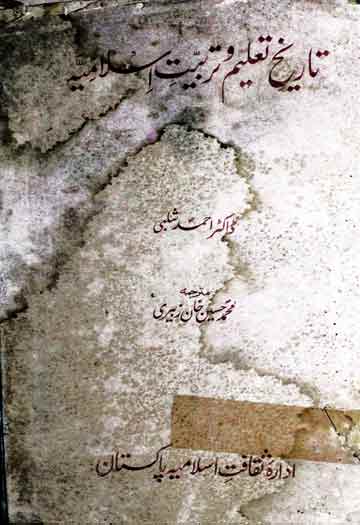 تاریخ تعلیم و تربیت اسلامیہ
ڈاکٹر احمد شلبی
مترجمہ
محمد حسین خان زبیری
ادارہ ثقافت اسلامیہ پاکستان